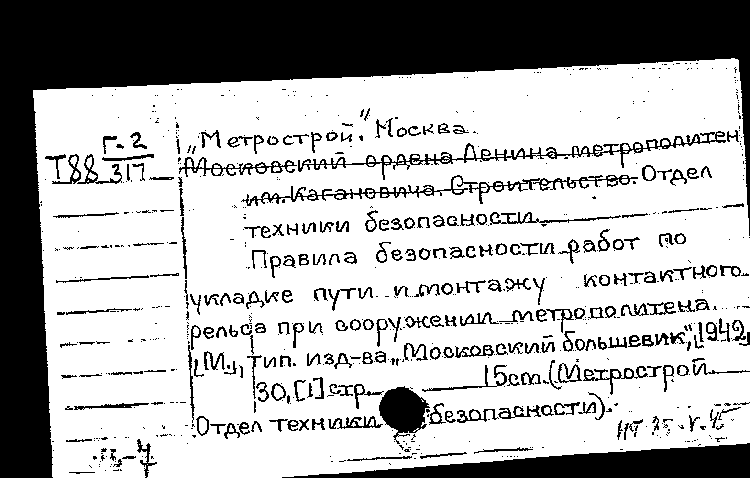 Г-2
Т88 317
„Метрострой", Москва.
Московский ордена Ленина метрополитен
им. Кагановича. Строительство. Отдел
техники безопасности.
Правила безопасности работ по
укладке пути и монтажу контактного
рельса при сооружении метрополитена.
[М.], тип. изд-ва „Московский большевик", [1942].
30, [1] стр. 15 cm. (Метрострой.
Отдел техники безопасности).